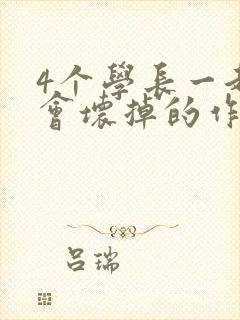 4个學長一起
會壞掉的作
吕瑞